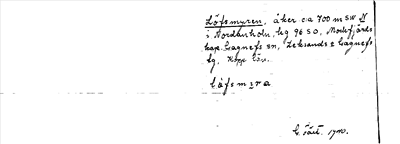 Löfsmyren, åker ca 700 m SW N
i Nordanholn, kg 96 SO, Mockfjärds
kap. Gagnefs sn, Leksands & Gagnefs
tg. Kopp. län.
löfsmira